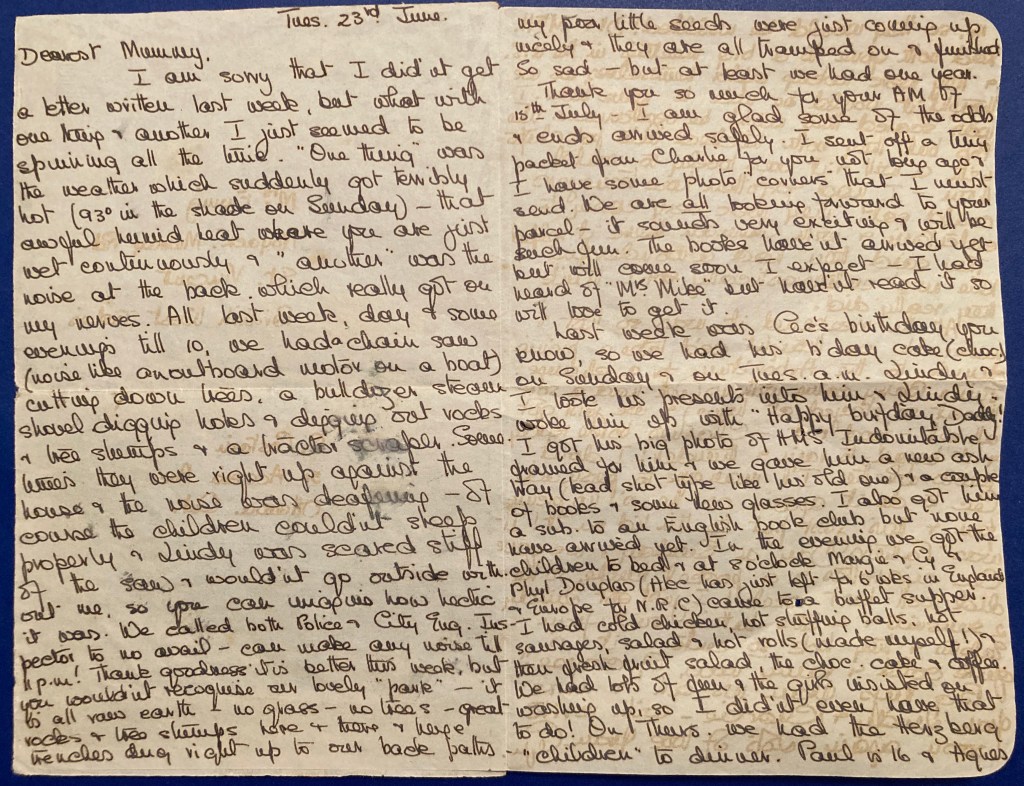 Tues. 23rd June.
Dearest Mummy,
I am sorry that I did'nt get
a letter written last week, but what with
one thing & another I just seemed to be
spinning all the time. "One thing" was
the weather which suddenly got terribly
hot (93° in the shade on Sunday) – that
awful humid heat where you are just
wet continuously & "another" was the
noise at the back which really got on
my nerves. All last week, day & some
evenings till 10, we had a chain saw
(noise like an outboard motor on a boat)
cutting down trees, a bulldozer steam
shovel digging holes & digging out rocks
& tree stumps & a tractor scraper. Some-
times they were right up against the
house & the noise was deafening – of
course the children could'nt sleep
properly & Lindy was scared stiff
of the saw & would'nt go outside with-
out me, so you can imagine how hectic
it was. We called both Police & City Eng. Ins-
pector to no avail – can make any noise till
11 p.m! Thank goodness it is better this week, but
you would'nt recognise our lovely "park" – it
is all raw earth – no grass – no trees – great
rocks & tree stumps here & there & huge
trenches dug right up to our back paths. –
my poor little seeds were just coming up
nicely & they are all tramped on &
So sad – but at least we had one year.
Thank you so much for your AM of
15th July – I am glad some of the odds
& ends arrived safely. I sent off a tiny
packet from Charlie for you not long ago &
I have some photo "corners" that I must
send. We are all looking forward to your
parcel – it sounds very exciting & will be
such fun. The books have'nt arrived yet
but will come soon I expect – I had
heard of "Mrs Mike" but have'nt read it so
will love to get it.
Last week was Cec's birthday you
know, so we had his b'day cake (choc.)
on Sunday & on Tues. a.m. Lindy &
I took his presents into him & Lindy
woke him up with "Happy birfday Daddy!"
I got his big photo of HMS Indomitable
framed for him & we gave him a new ash
tray (lead shot type like his old one) & a couple
of books & some new glasses. I also got him
a sub. to an English book club but none
have arrived yet. In the evening we got the
children to bed & at 8 o'clock Margie & Cy &
Phyl Douglas (Alec has just left for 6 wks in England
& Europe for N.R.C) came to a buffet supper.
I had cold chicken, hot stuffing balls, hot
sausages, salad & hot rolls (made myself!) &
then fresh fruit salad, the choc. cake & coffee.
We had lots of fun & the girls insisted on
washing up, so I did'nt even have that
to do! On Thurs. we had the Herzberg
"children" to dinner. Paul is 16 & Agnes